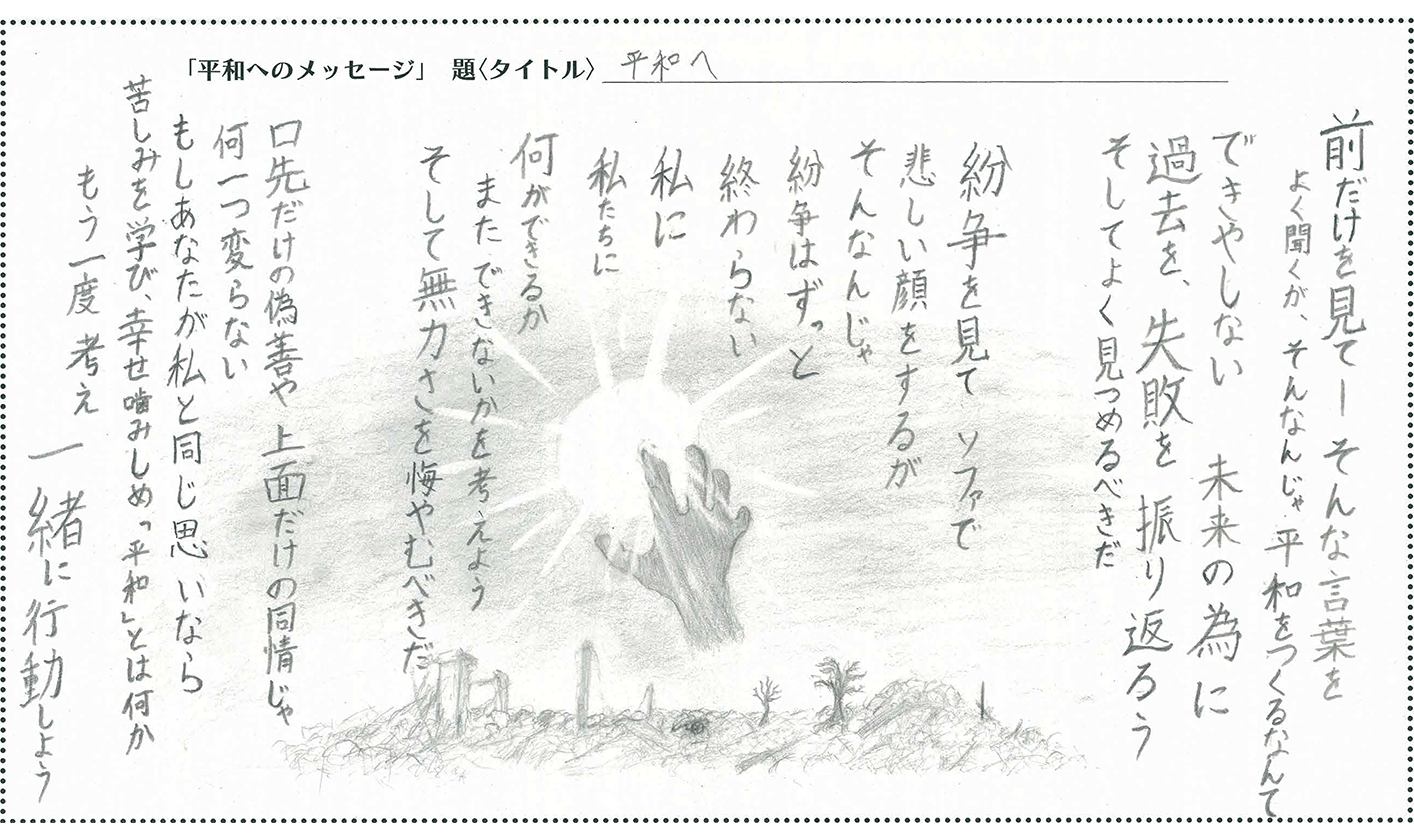 「平和へのメッセージ」 題〈タイトル〉 平和へ
前だけを見てー そんな言葉を
よく聞くが、そんなんじゃ 平和をつくるなんて
できやしない 未来の為に
過去を、失敗を 振り返ろう
そしてよく見つめるべきだ
紛争を見て ソファで
悲しい顔をするが
そんなんじゃ
紛争はずっと
終わらない
私に
私たちに
何ができるか
またできないかを考えよう
そして無力さを悔やむべきだ
口先だけの偽善や 上面だけの同情じゃ
何一つ変らない
もしあなたが私と同じ思いなら
苦しみを学び、幸せ噛みしめ「平和」とは何か
もう一度考え
一緒に行動しよう